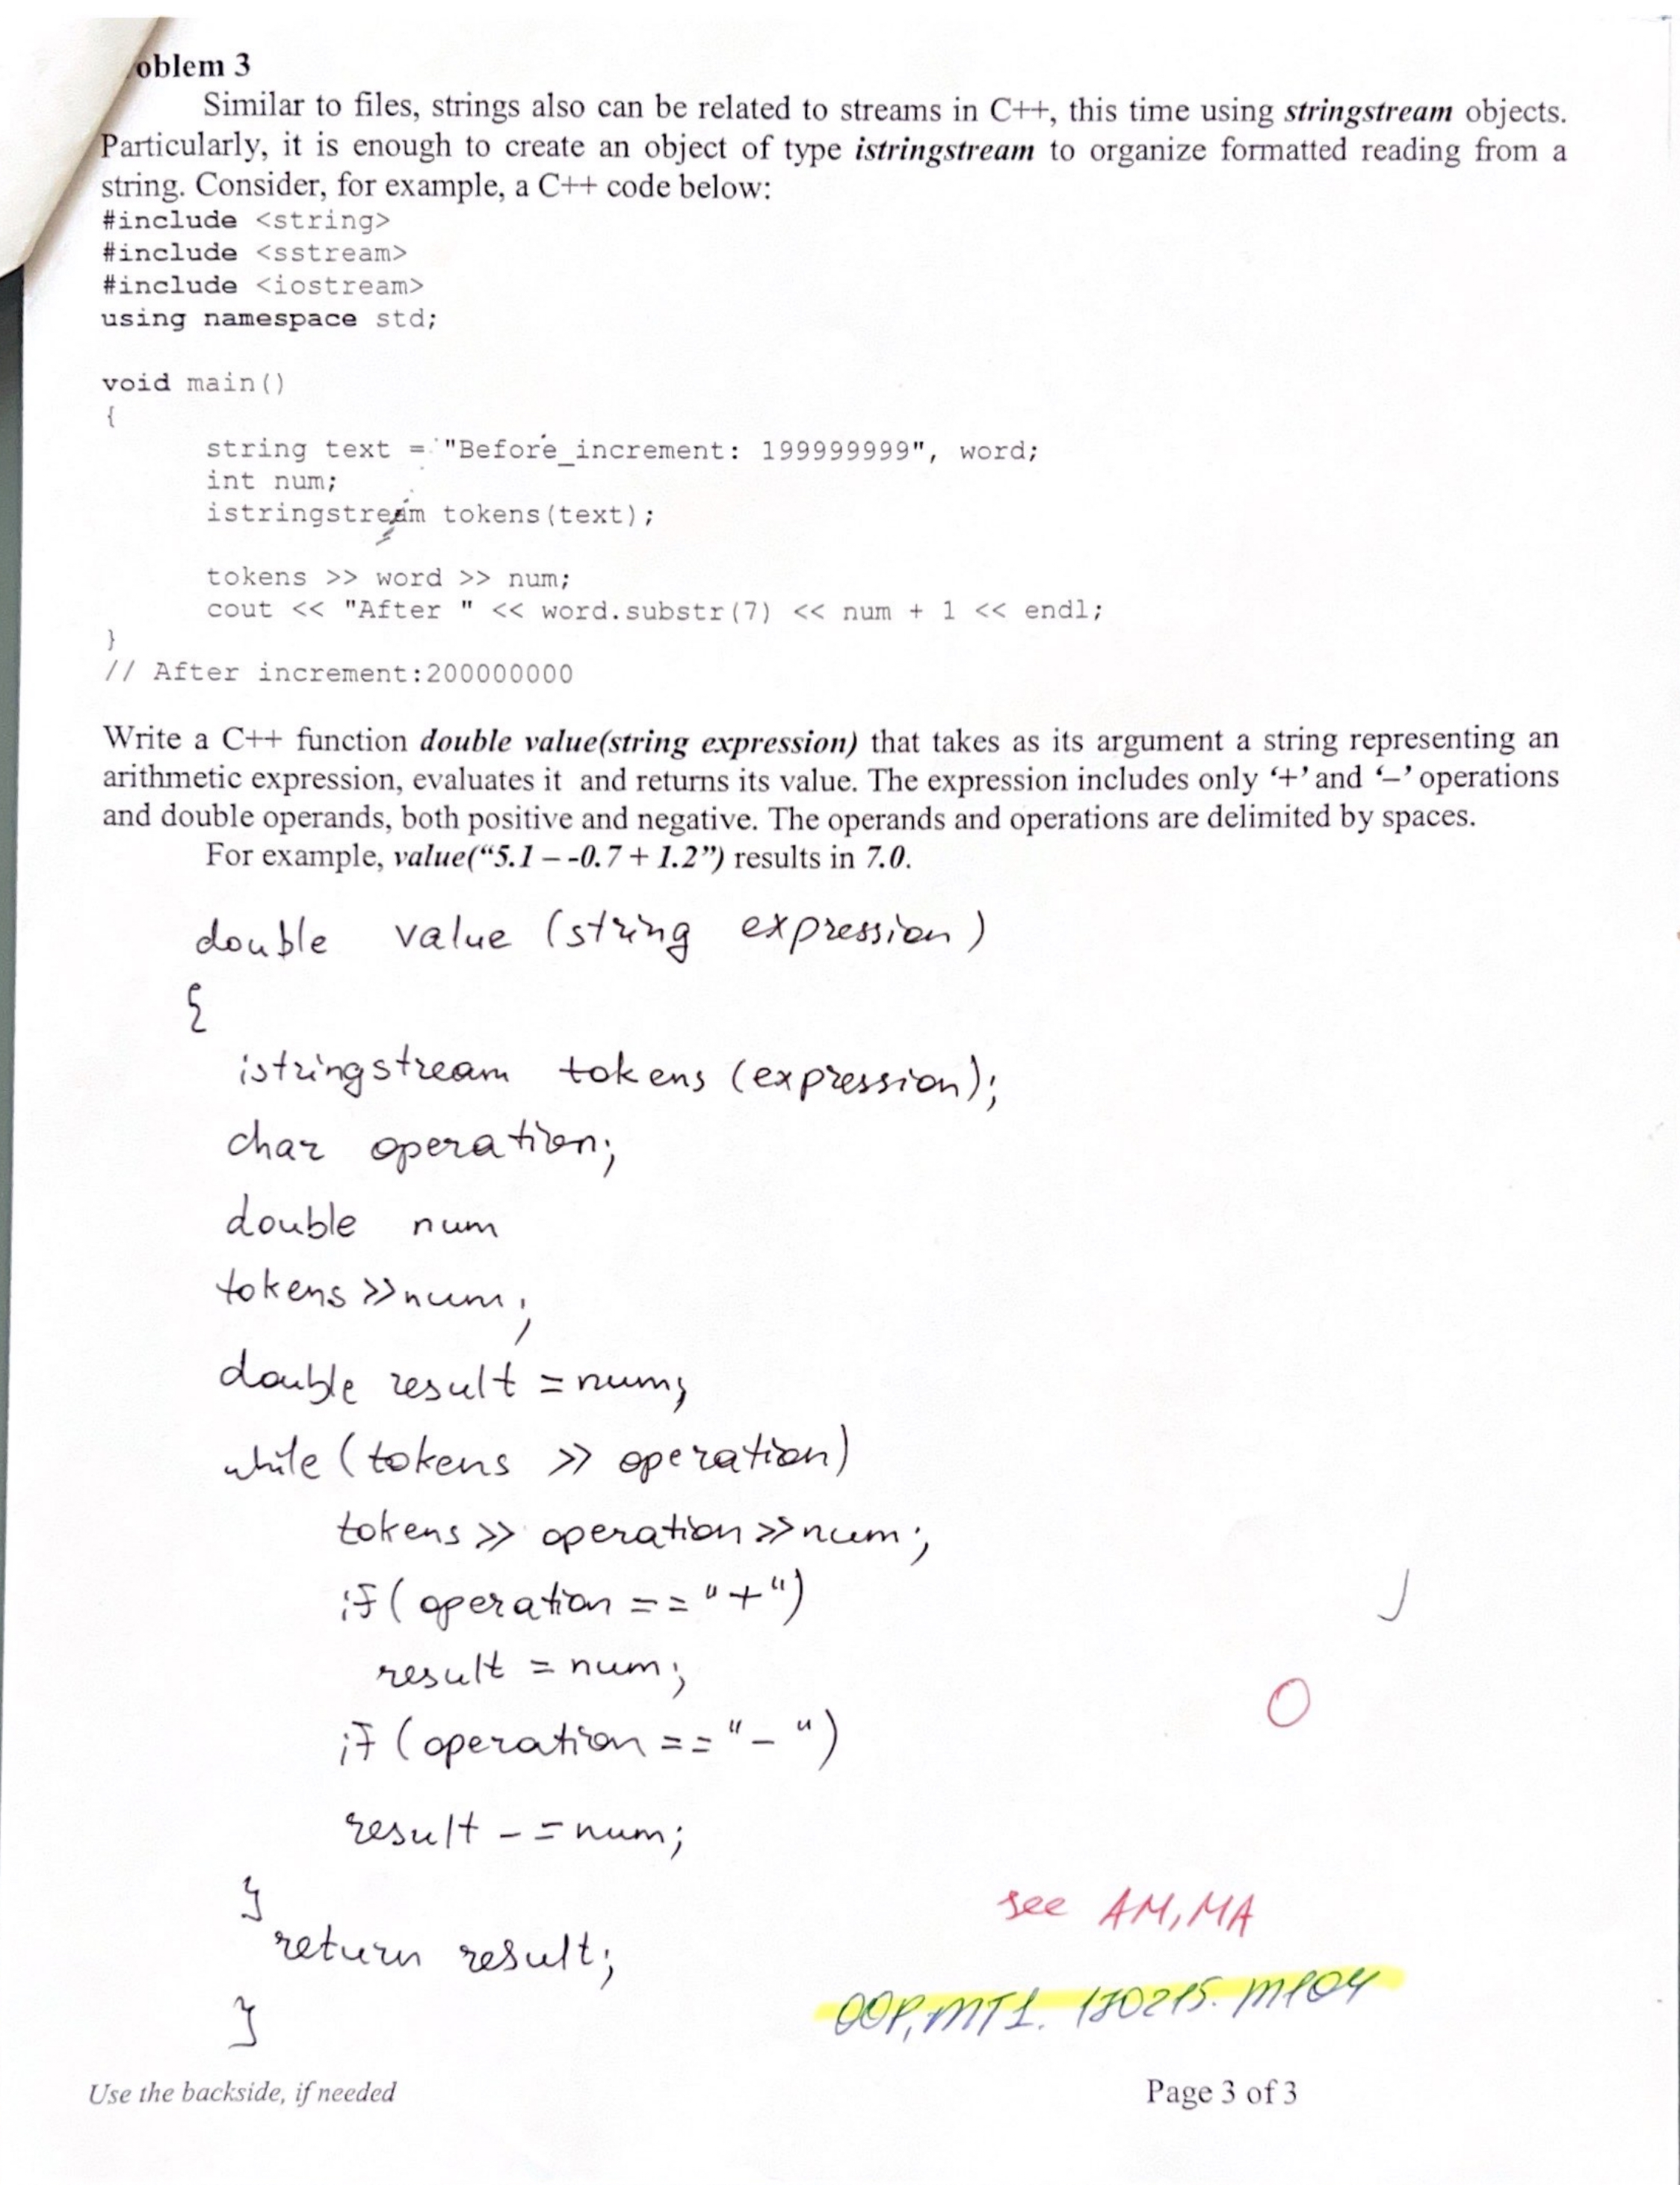 oblem 3
Similar to files, strings also can be related to streams in C++, this time using stringstream objects.
Particularly, it is enough to create an object of type istringstream to organize formatted reading from a
string. Consider, for example, a C++ code below:
#include <string>
#include <sstream>
#include <iostream>
using namespace std;
void main()
{
string text = "Before_increment: 199999999", word;
int num;
istringstream tokens(text);
tokens >> word >> num;
cout << "After " << word.substr(7) << num + 1 << endl;
}
// After increment:200000000
Write a C++ function double value(string expression) that takes as its argument a string representing an
arithmetic expression, evaluates it and returns its value. The expression includes only ‘+’ and ‘–’ operations
and double operands, both positive and negative. The operands and operations are delimited by spaces.
For example, value(“5.1 – -0.7 + 1.2”) results in 7.0.
double value (string expression)
{
istringstream tokens (expression);
char operation;
double num
tokens >> num;
double result = num;
while (tokens >> operation)
tokens >> operation >> num;
if (operation == "+")
result = num;
if (operation == "-")
result -= num;
}
return result;
}
O
see AM, MA
OOP, MT1. 170215. M104
Use the backside, if needed
Page 3 of 3